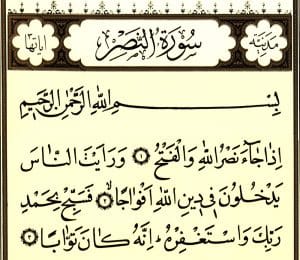 مدنية سورة النصر آياتها
بسم الله الرحمن الرحيم
إِذَا جَاءَ نَصْرُ اللَّهِ وَالْفَتْحُ ۝ وَرَأَيْتَ النَّاسَ
يَدْخُلُونَ فِي دِينِ اللَّهِ أَفْوَاجًا ۝ فَسَبِّحْ بِحَمْدِ
رَبِّكَ وَاسْتَغْفِرْهُ ۚ إِنَّهُ كَانَ تَوَّابًا ۝